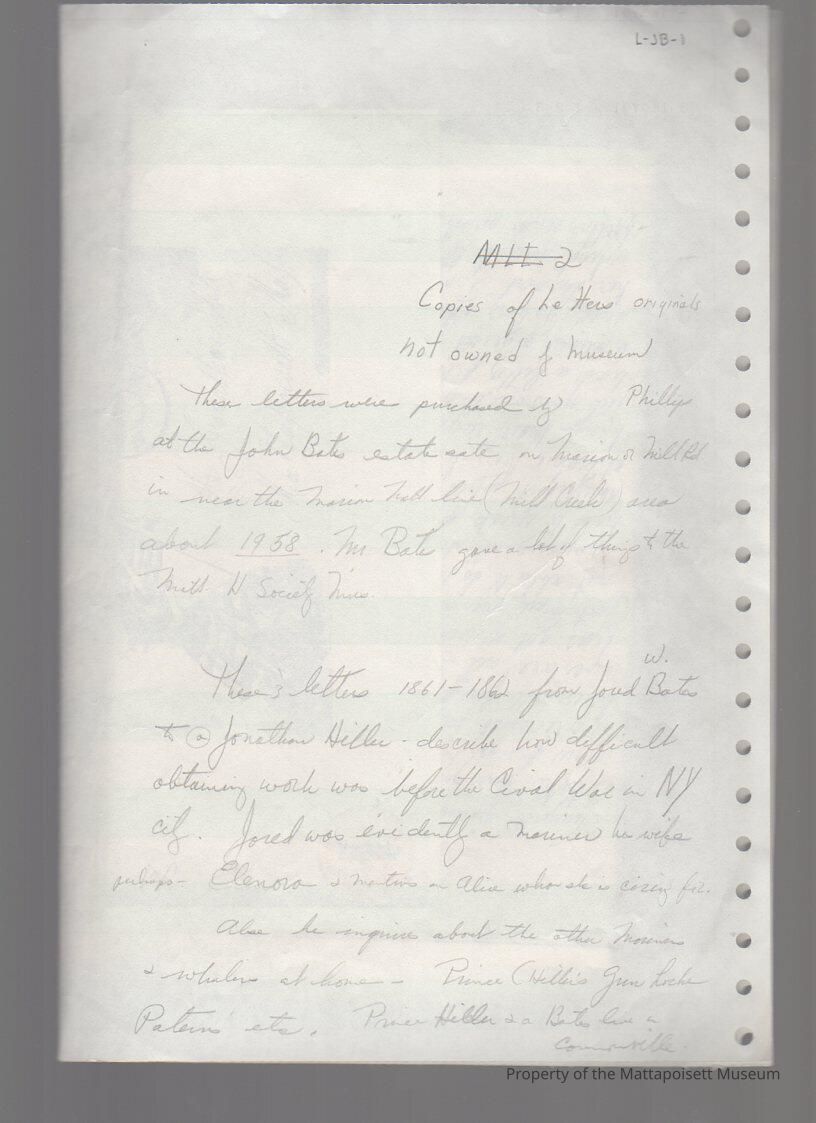 L-JB-1
MLI-2
Copies of Letters originals
not owned by Museum
These letters were purchased by Phillips
at the John Bates estate sale on Marion or Mill Rd
in near the Marion Matt line (Mill Creek) area
about 1958. Mr Bates gave a lot of things to the
Matt. H Society Mus.
w.
These 3 letters 1861-1862 from Jored Bates
to a Jonathan Hiller - describe how difficult
obtaining work was before the Cival War in NY
city. Jored was evidently a mariner his wife
perhaps - Elenora & mentions an Alice whom she is caring for.
Also he inquires about the other Mariners
& whalers at home - Prince (Hiller's Gun Locke
Patens etc. Prince Hiller & a Bates live in
Cannonville.
Property of the Mattapoisett Museum